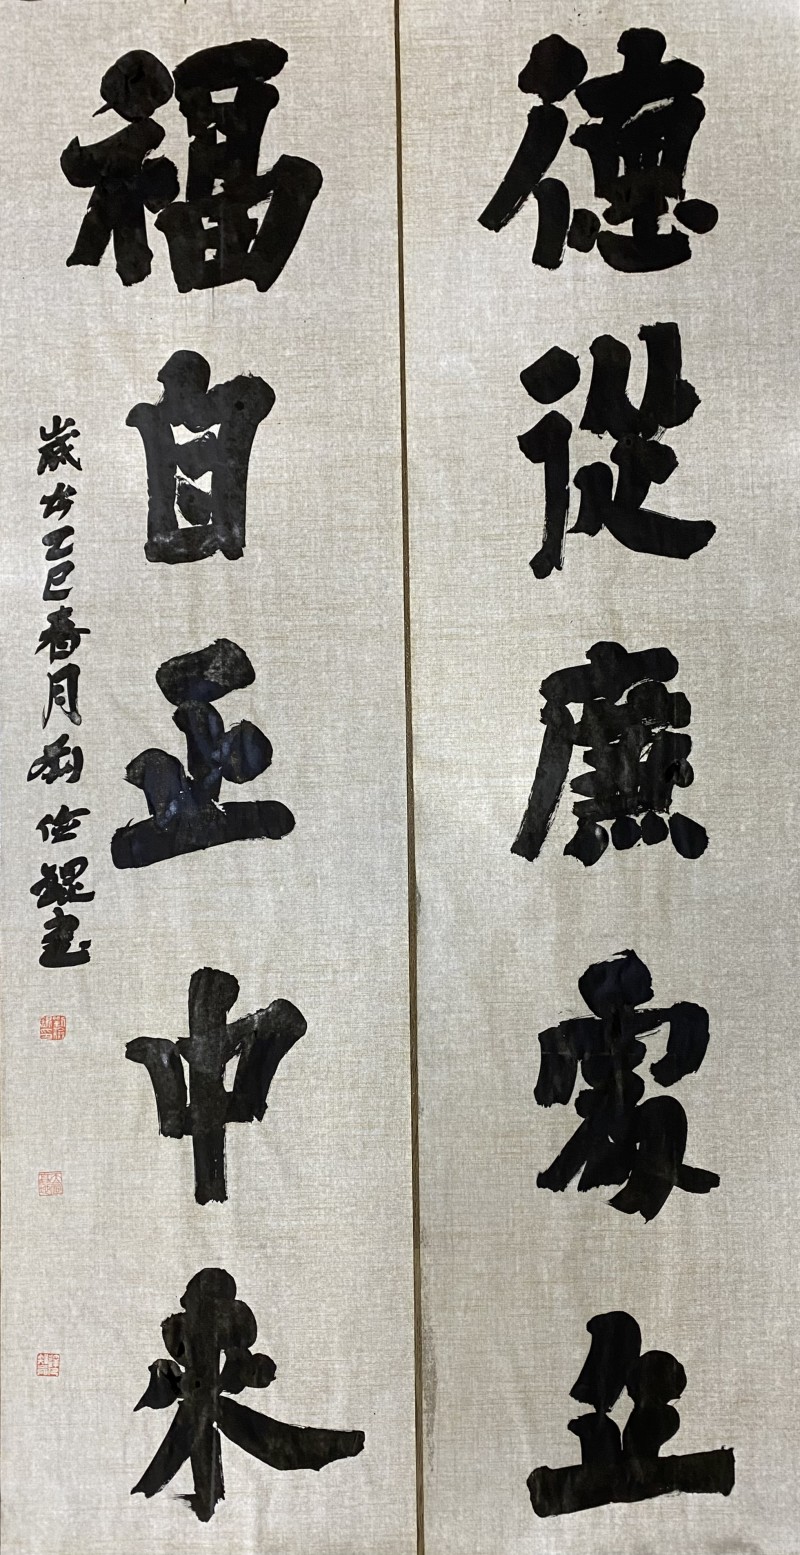 德從廉處立
福自正中來
歲次乙巳春月劉仕錕書